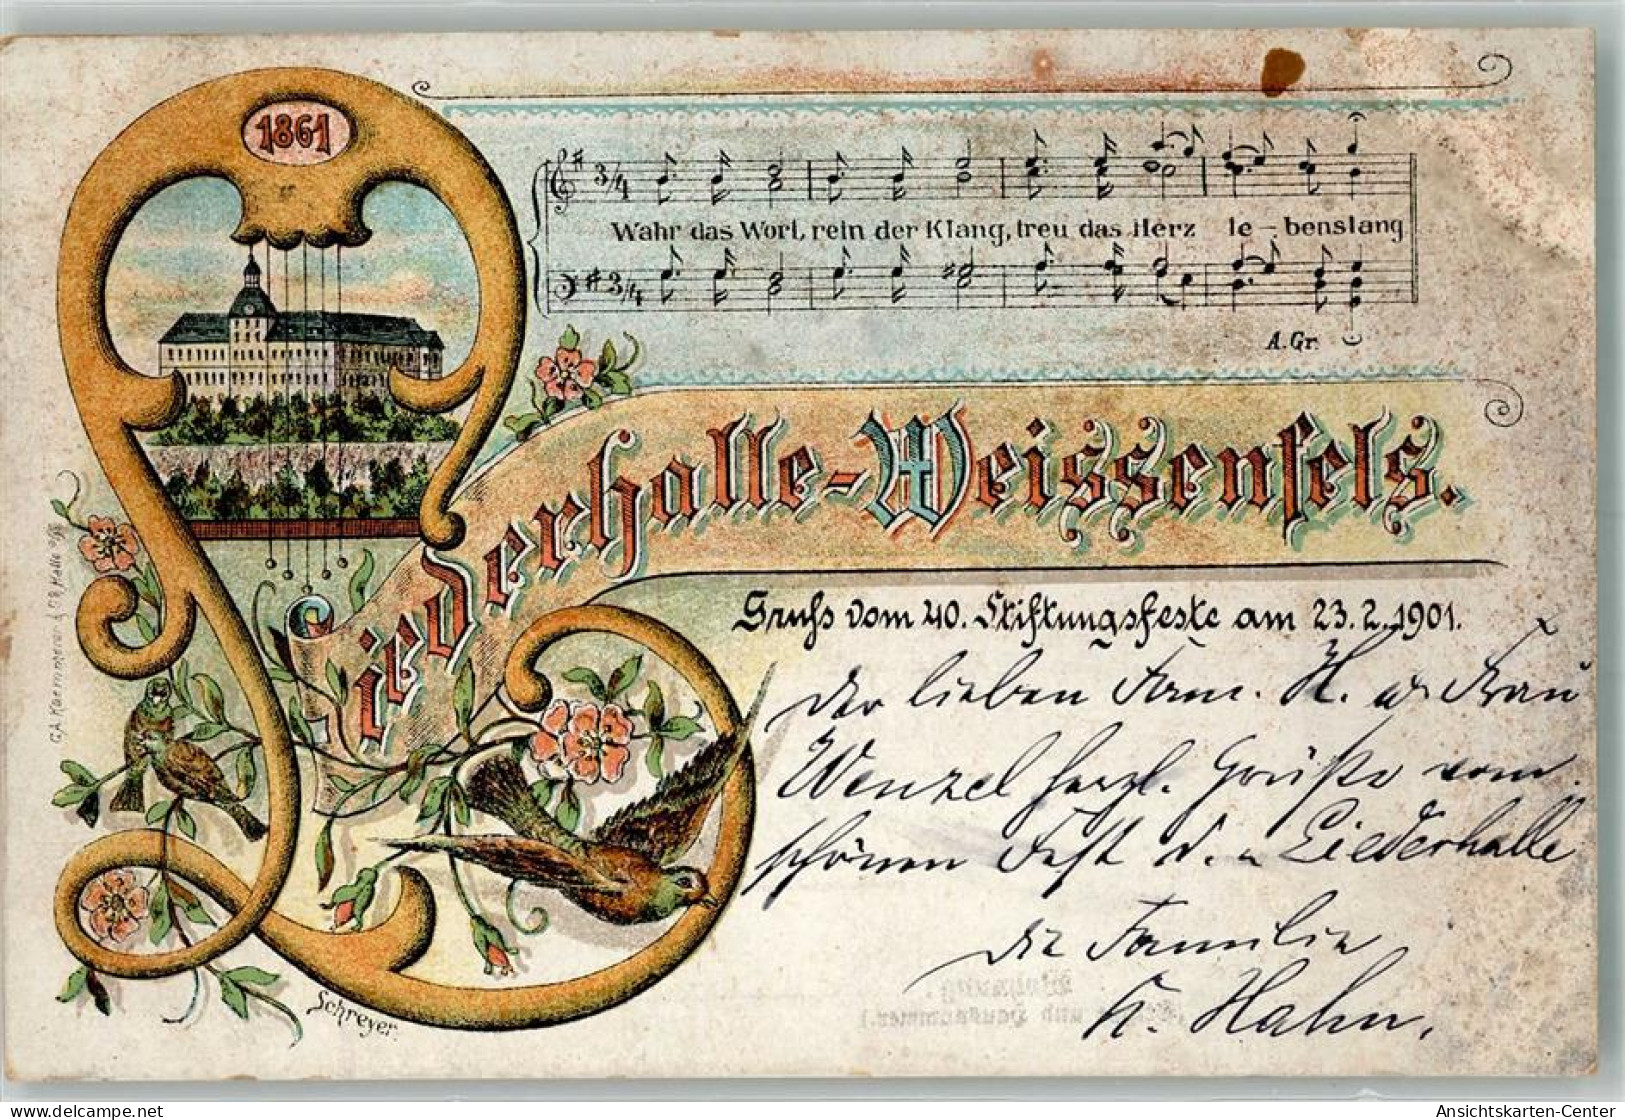 1861
Wahr das Wort, rein der Klang, treu das Herz le - benslang
A. Gr.
Liederhalle-Weissenfels.
Gruss vom 40. Stiftungsfeste am 23.2.1901.
Der lieben Fam. H. u. Frau
Wenzel herzl. Grüße vom
schönen Fest d. Liederhalle
die Familie
K. Hahn.
Schreyer
G.A. Kaemmerer Halle a/S
Wohnung
(Straße und Hausnummer.)
Ansichtskarten-Center